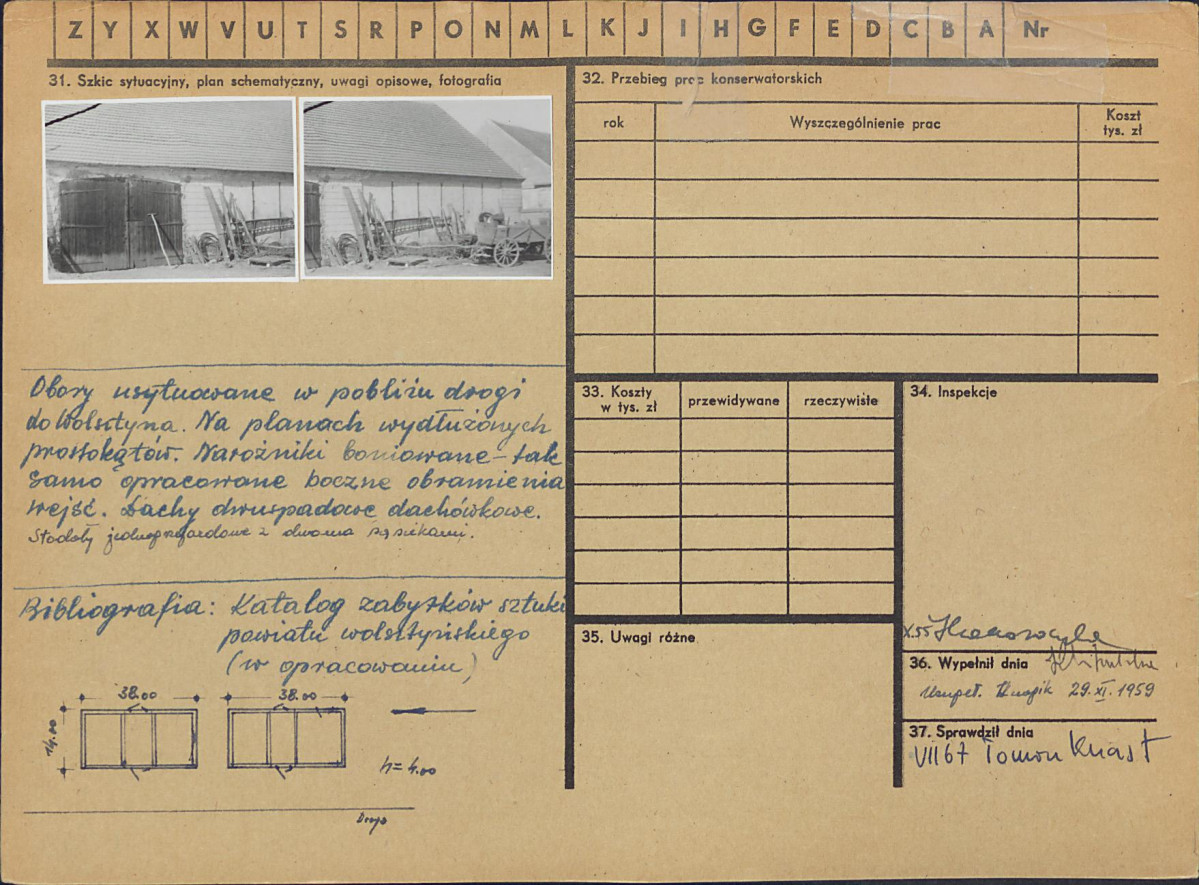 Z Y X W V U T S R P O N M L K J I H G F E D C B A Nr
31. Szkic sytuacyjny, plan schematyczny, uwagi opisowe, fotografia
Obory usytuowane w pobliżu drogi
do Wolsztyna. Na planach wydłużonych
prostokątów. Narożniki boniowane – tak
samo opracowane boczne obramienia
wejść. Dachy dwuspadowe dachówkowe.
Stodoły jednoprzejazdowe z dwoma sąsiekami.
Bibliografia: Katalog zabytków sztuki
powiatu wolsztyńskiego
(w opracowaniu)
38.00 38.00
14.00
h = 4.00
Droga
32. Przebieg prac konserwatorskich
rok Wyszczególnienie prac Koszt
tys. zł
33. Koszty
w tys. zł przewidywane rzeczywiste
34. Inspekcje
35. Uwagi różne
X.55
36. Wypełnił dnia
Uzupeł. 29.XI.1959
37. Sprawdził dnia
VII 67 Knast